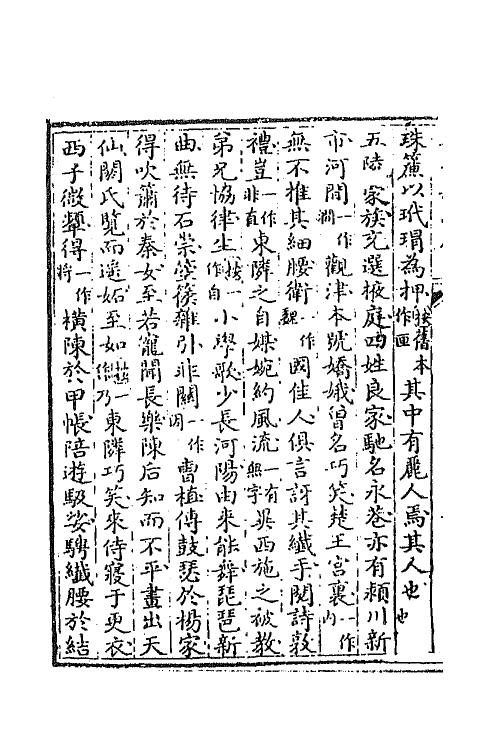 珠簾以玳瑁為押按舊本作匣其中有麗人焉其人也也
五陵家族充選掖庭四姓良家馳名永巷亦有頴川新
市河間一作澗觀津本號嬌娥曾名巧笑楚王宮裏一作内
無不推其細腰衛一作魏國佳人俱言訝其纖手閲詩敦
禮豈一作非直東隣之自媒婉約風流一有無字異西施之被教
弟兄協律生按一作自小學歌少長河陽由來能舞琵琶新
曲無待石崇箜篌雜引非關一作因曹植傳鼓瑟於楊家
得吹簫於秦女至若寵聞長樂陳后知而不平畫出天
仙閼氏覧而遥妬至如按一作乃東隣巧笑來侍寢于更衣
西子微顰得一作將横陳於甲帳陪遊馺娑騁纖腰於結